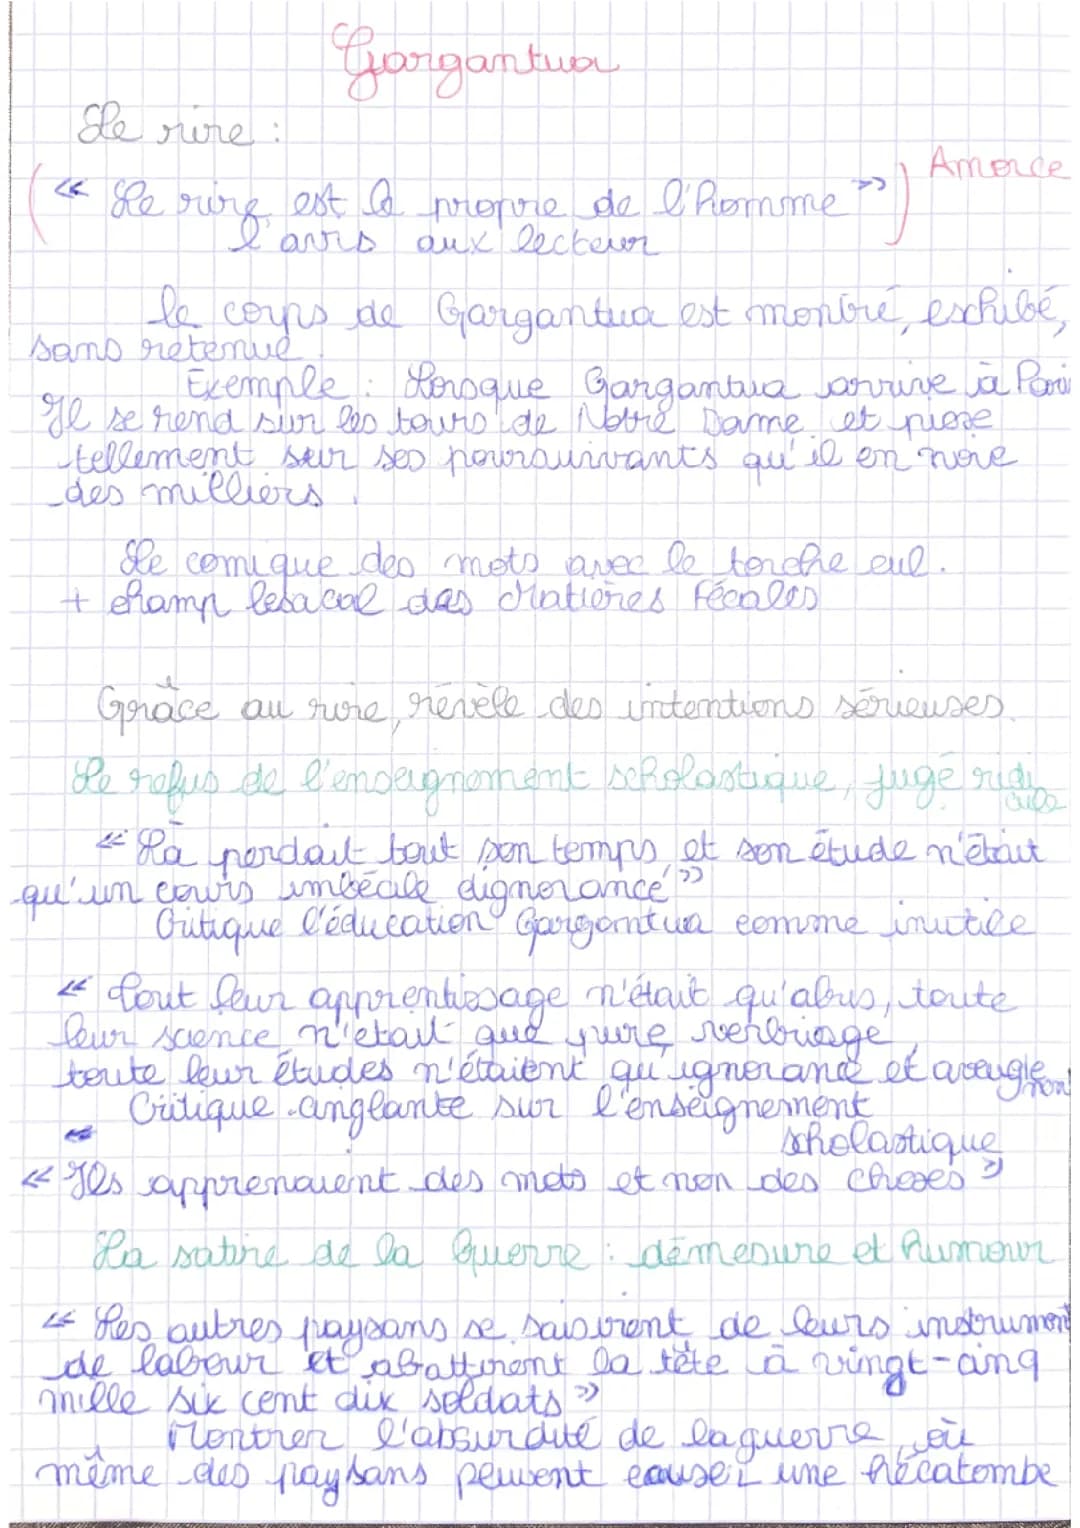 Gargantua
Le rire :
Amorce
(« Le rire est le propre de l'homme »)
l'avis aux lecteur
le corps de Gargantua est montré, eschibé,
sans retenue.
Exemple : Lorsque Gargantua arrive à Paris
Il se rend sur les tours de Notre Dame et pisse
tellement sur ses poursuivants qu'il en noie
des milliers.
Le comique des mots avec le torche cul.
+ champ lexacal des Matières Fécales
Grâce au rire, révèle des intentions sérieuses.
Le refus de l'enseignement scholastique, jugé ridi
cule
« Là perdait tout son temps, et son étude n'était
qu'un cours imbécile dignorance »
Critique l'éducation Gargantua comme inutile
« Tout leur apprentissage n'était qu'abus, toute
leur science n'était que pure verbiage,
toute leur études n'étaient qu'ignorance et aveugle
Critique .anglante sur l'enseignement
scholastique
« Ils apprenaient des mots et non des choses »
La satire de la Guerre : démesure et humour
« Les autres paysans se saisirent de leurs instrument
de labour et abattirent la tête à vingt-cinq
mille six cent dix soldats »
Montrer l'absurdité de la guerre, où
même des paysans peuvent causer une hécatombe